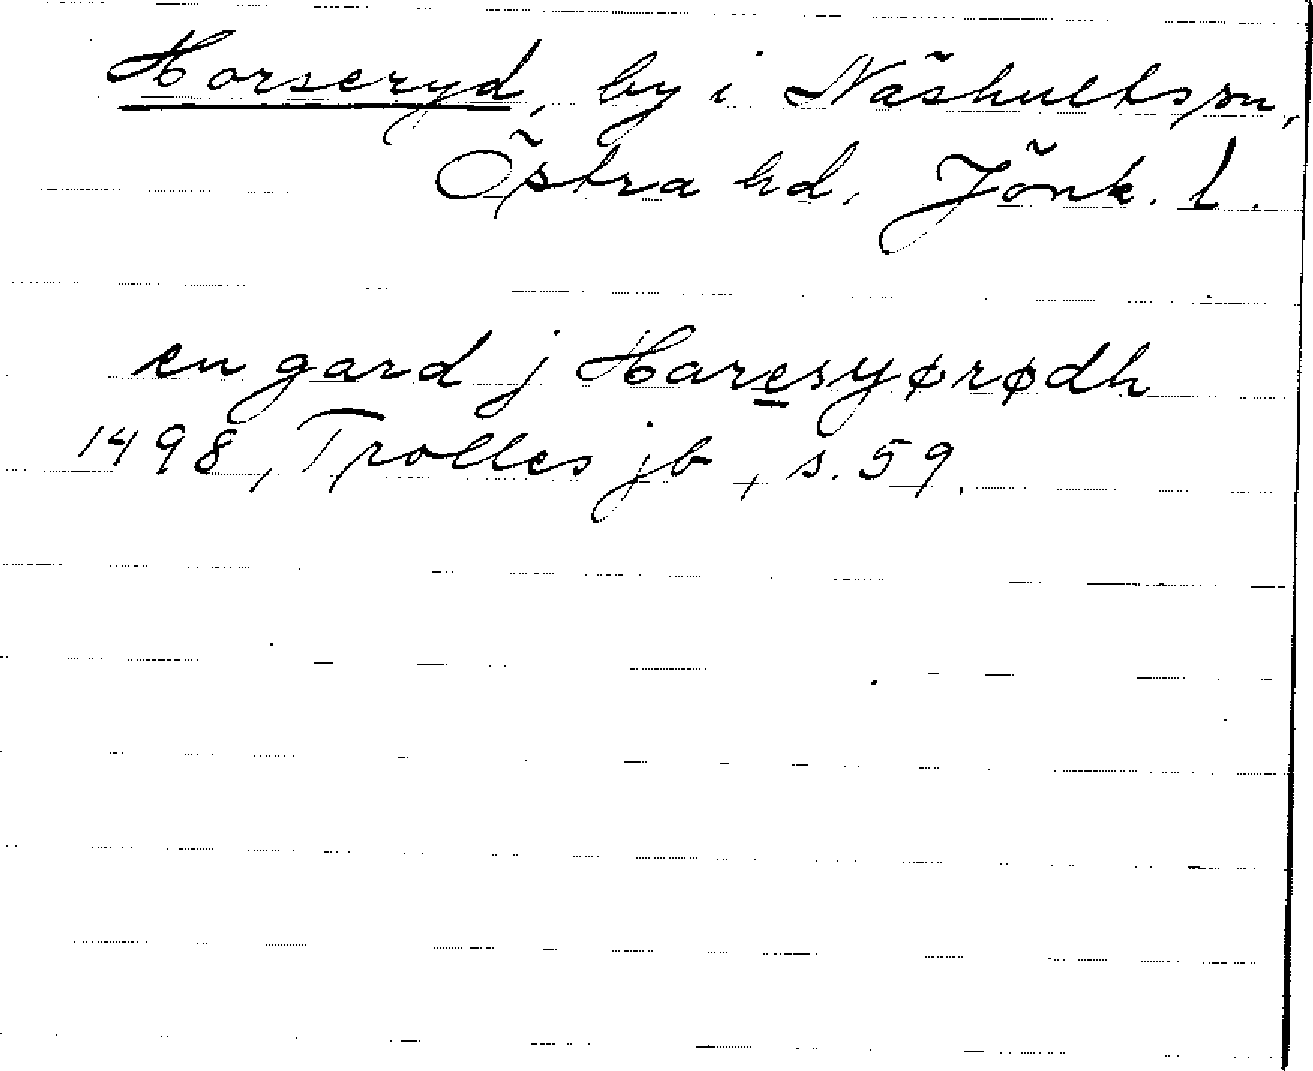 Horseryd, by i Näshults sn,
Östra hd, Jönk. l.
en gard j Haresyørødh
1498, Trolles jb, s. 59.